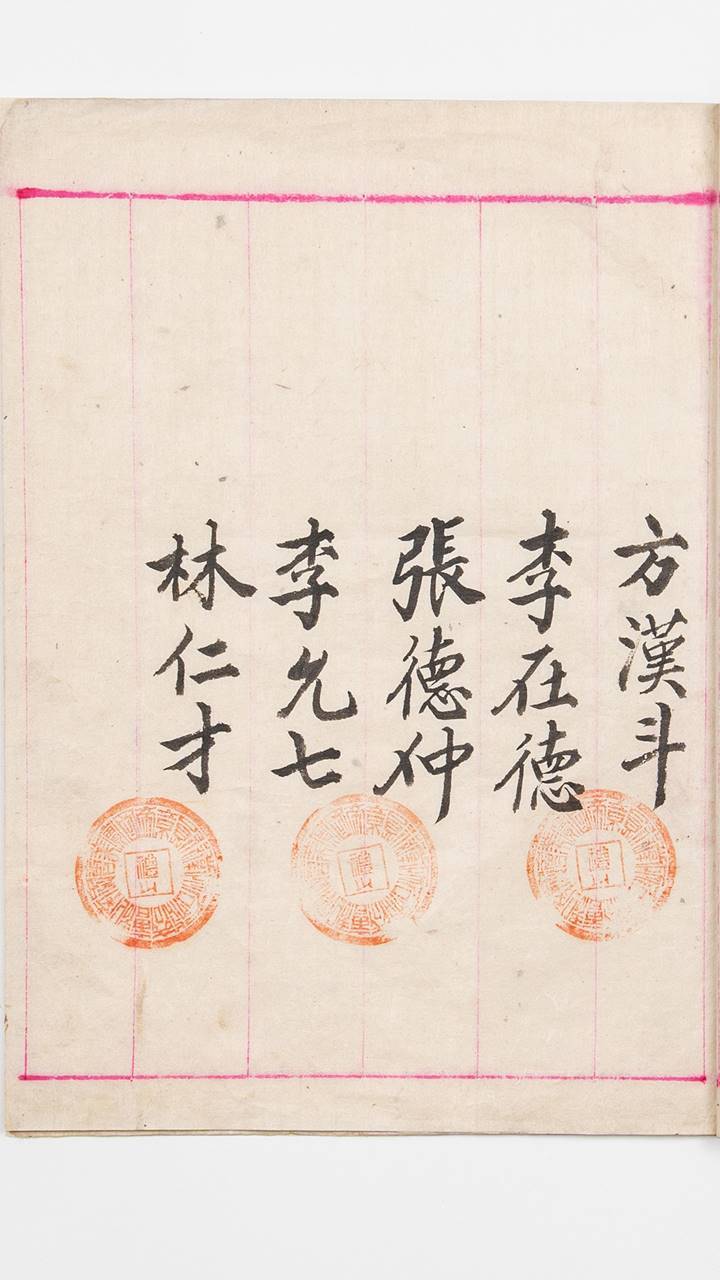 方漢斗
李在德
張德仲
李允七
林仁才